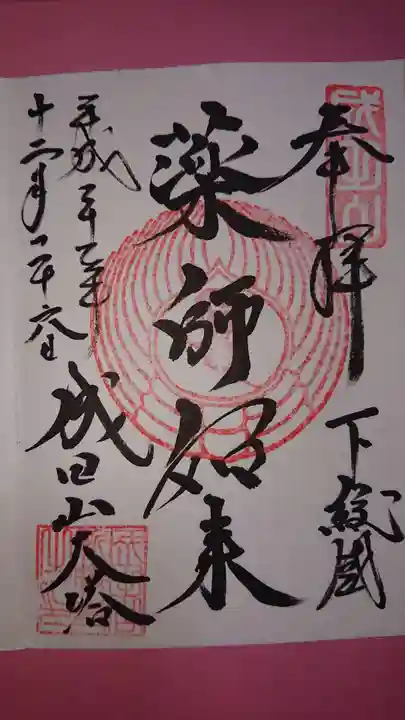 奉拝
下総國
薬師如来
平成二十七年
十二月二十六日
成田山大塔
成田山